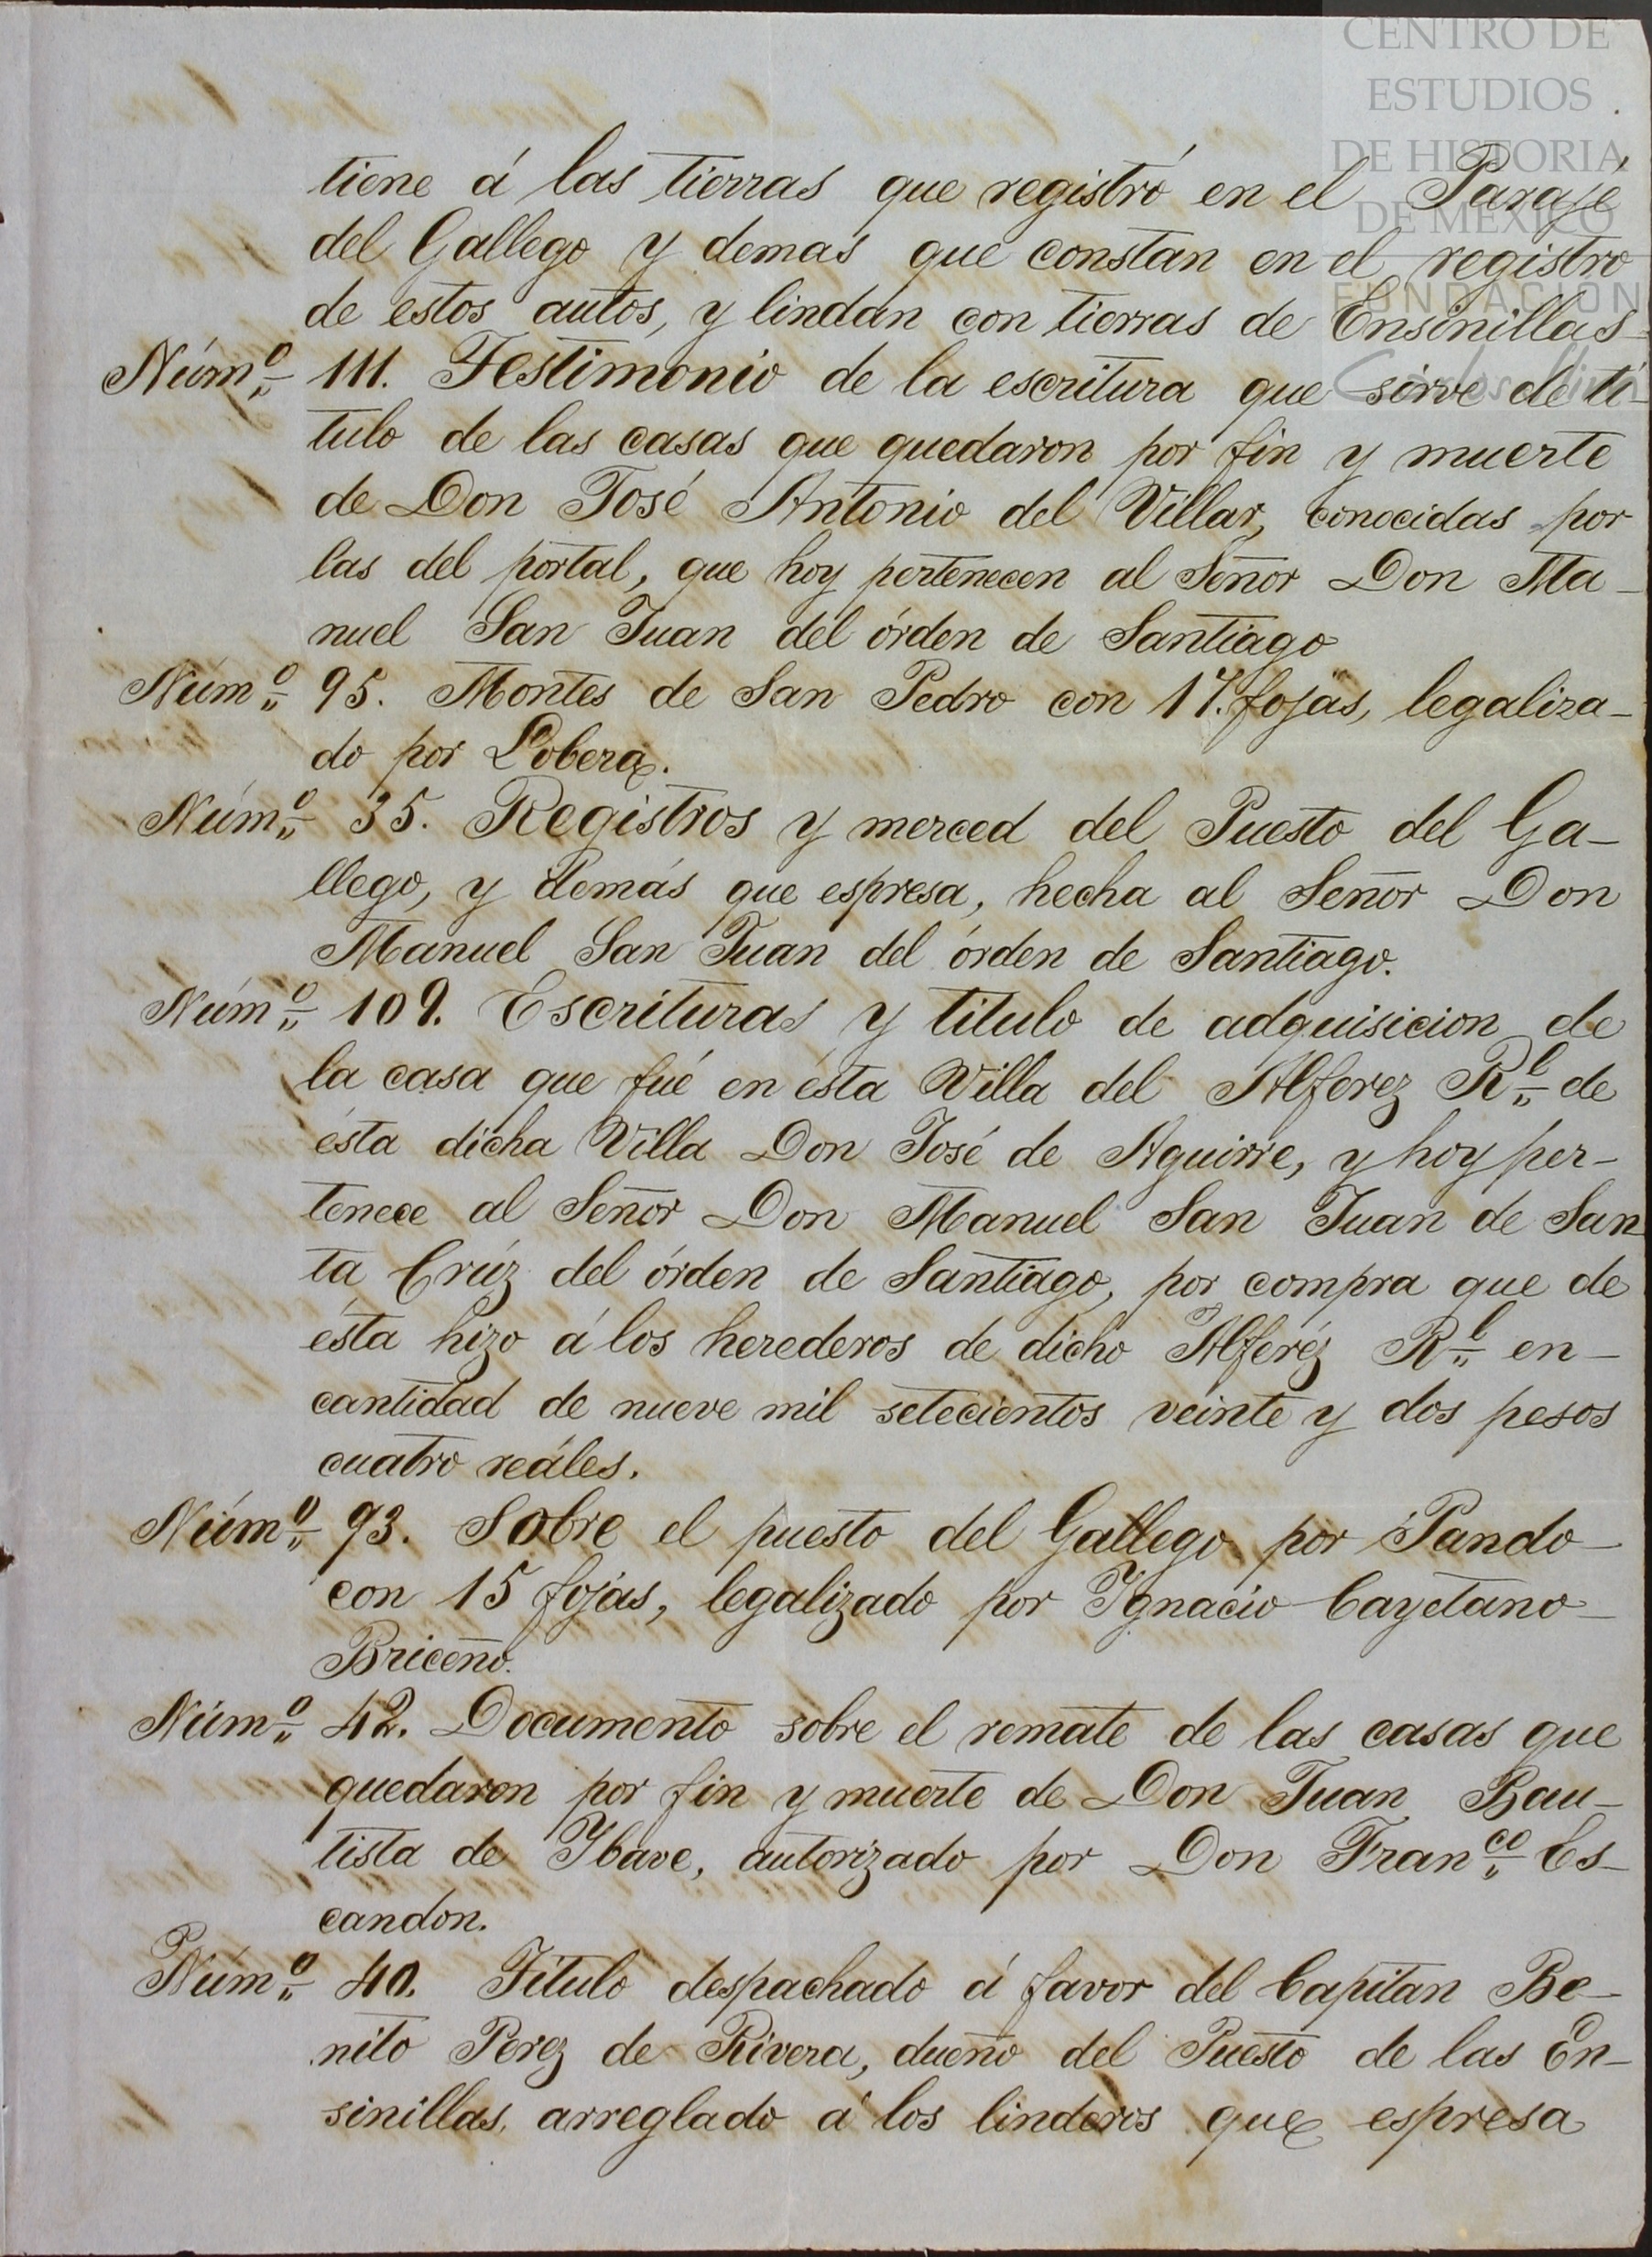 CENTRO DE
ESTUDIOS
DE HISTORIA
DE MÉXICO
FUNDACIÓN
Carlos Slim
tiene á las tierras que registró en el Paraje
del Gallego y demas que constan en el registro
de estos autos, y lindan con tierras de Ensinillas-
Núm.º 111. Testimonio de la escritura que sirve de tí-
tulo de las casas que quedaron por fin y muerte
de Don José Antonio del Villar, conocidas por
las del portal, que hoy pertenecen al Señor Don Ma-
nuel San Juan del órden de Santiago
Núm.º 95. Montes de San Pedro con 17. fojas, legaliza-
do por Lobera.
Núm.º 35. Registros y merced del Puesto del Ga-
llego, y demás que espresa, hecha al Señor Don
Manuel San Juan del órden de Santiago.
Núm.º 109. Escrituras y titulo de adquisicion de
la casa que fué en ésta Villa del Alferez R.l de
ésta dicha Villa Don José de Aguirre, y hoy per-
tenece al Señor Don Manuel San Juan de San
ta Crúz del órden de Santiago, por compra que de
ésta hizo á los herederos de dicho Alferéz R.l en-
cantidad de nueve mil setecientos veinte y dos pesos
cuatro reáles.
Núm.º 93. Sobre el puesto del Gallego por Pando-
con 15 fojas, legalizado por Ygnacio Cayetano-
Briceño.
Núm.º 42. Documento sobre el remate de las casas que
quedaron por fin y muerte de Don Juan Bau-
tista de Ybave, autorizado por Don Fran.co Es-
candon.
Núm.º 40. Título despachado á favor del Capitan Be-
nito Perez de Rivera, dueño del Puesto de las En-
sinillas, arreglado á los linderos que espresa